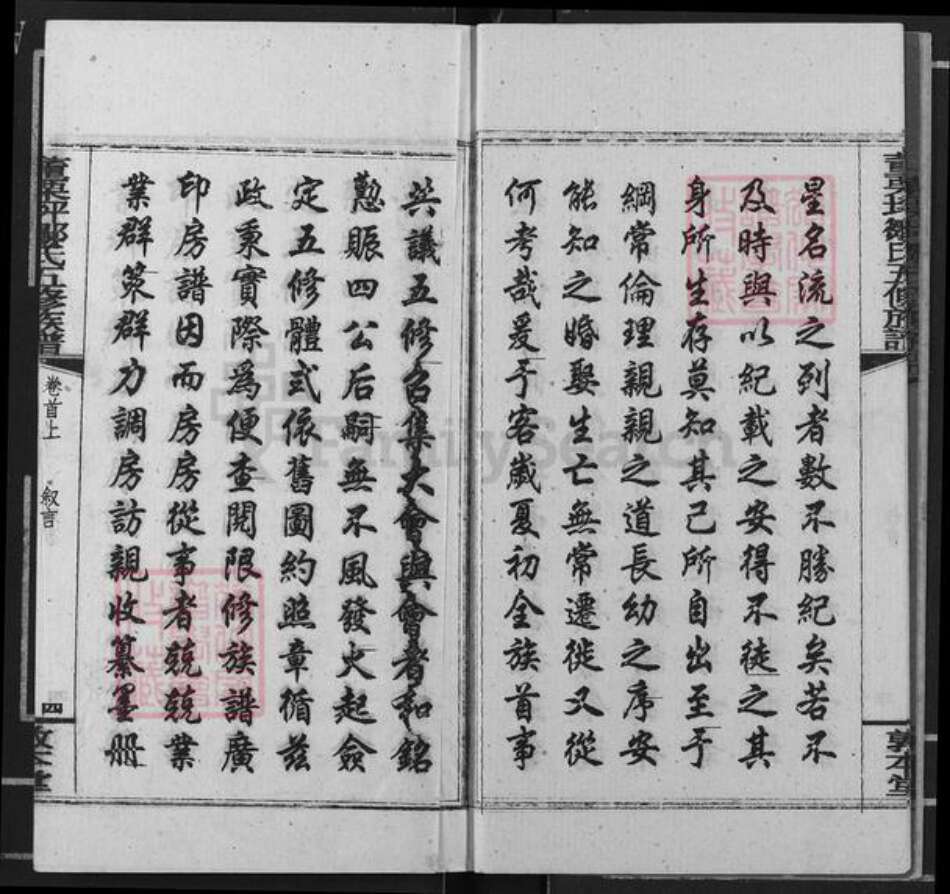 星名流之列者數不勝紀矣若不
及時與以紀載之安得不徒之其
身所生存莫知其己所自出至于
綱常倫理親親之道長幼之序安
能知之婚娶生亡無常遷徙又從
何考哉爰于客歲夏初全族首事
共議五修召集大會與會者和銘
懃賑四公后嗣無不風發火起僉
定五修體式依舊圖約照章循茲
政秉實際為便查閱限修族譜廣
印房譜因而房房從事者兢兢業
業群策群力調房訪親收纂墨册
卷首上
叙言
四
FamilySearch